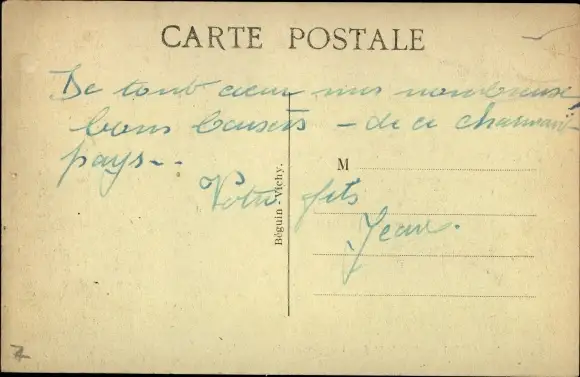 CARTE POSTALE
De tout cœur mes nombreuse
bons baisers – de ce charmant
pays--
M
Votre fils
Jean.
Béguin - Vichy.
7